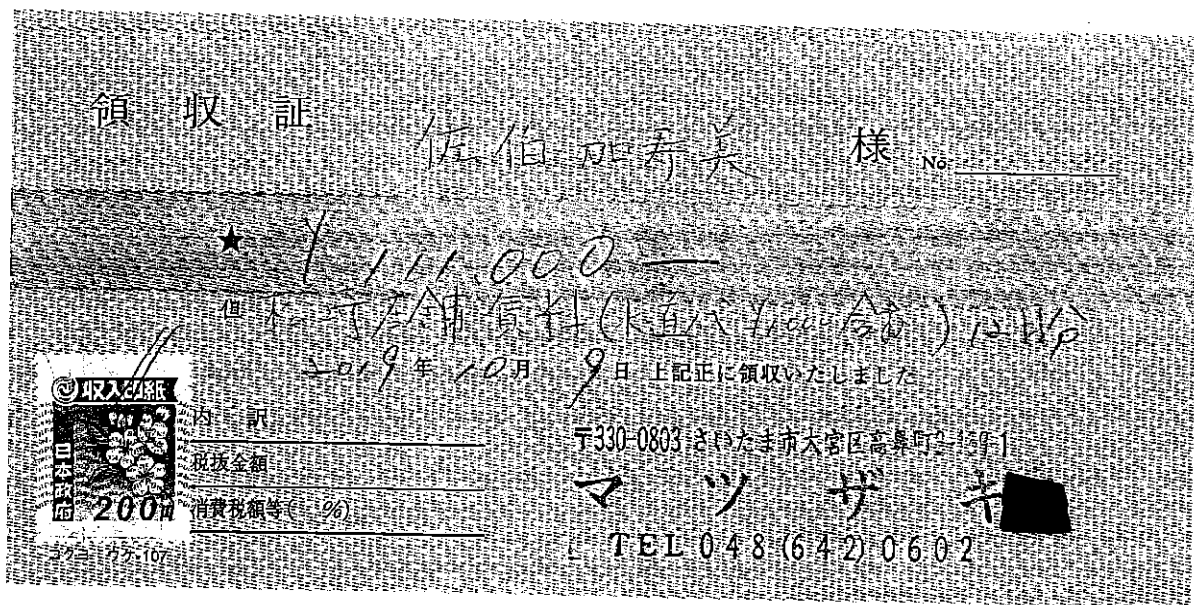 領収証
佐伯加寿美 様 No.
★ ¥111,000—
但 店舗賃料(水道代¥1,000含む)12
2019年10月9日 上記正に領収いたしました
収入印紙
日本政府
200円
内訳
税抜金額
消費税額等( %)
コクヨ ウケ-107
〒330-0803 さいたま市大宮区高鼻町
マツザキ
TEL 048(642)0602